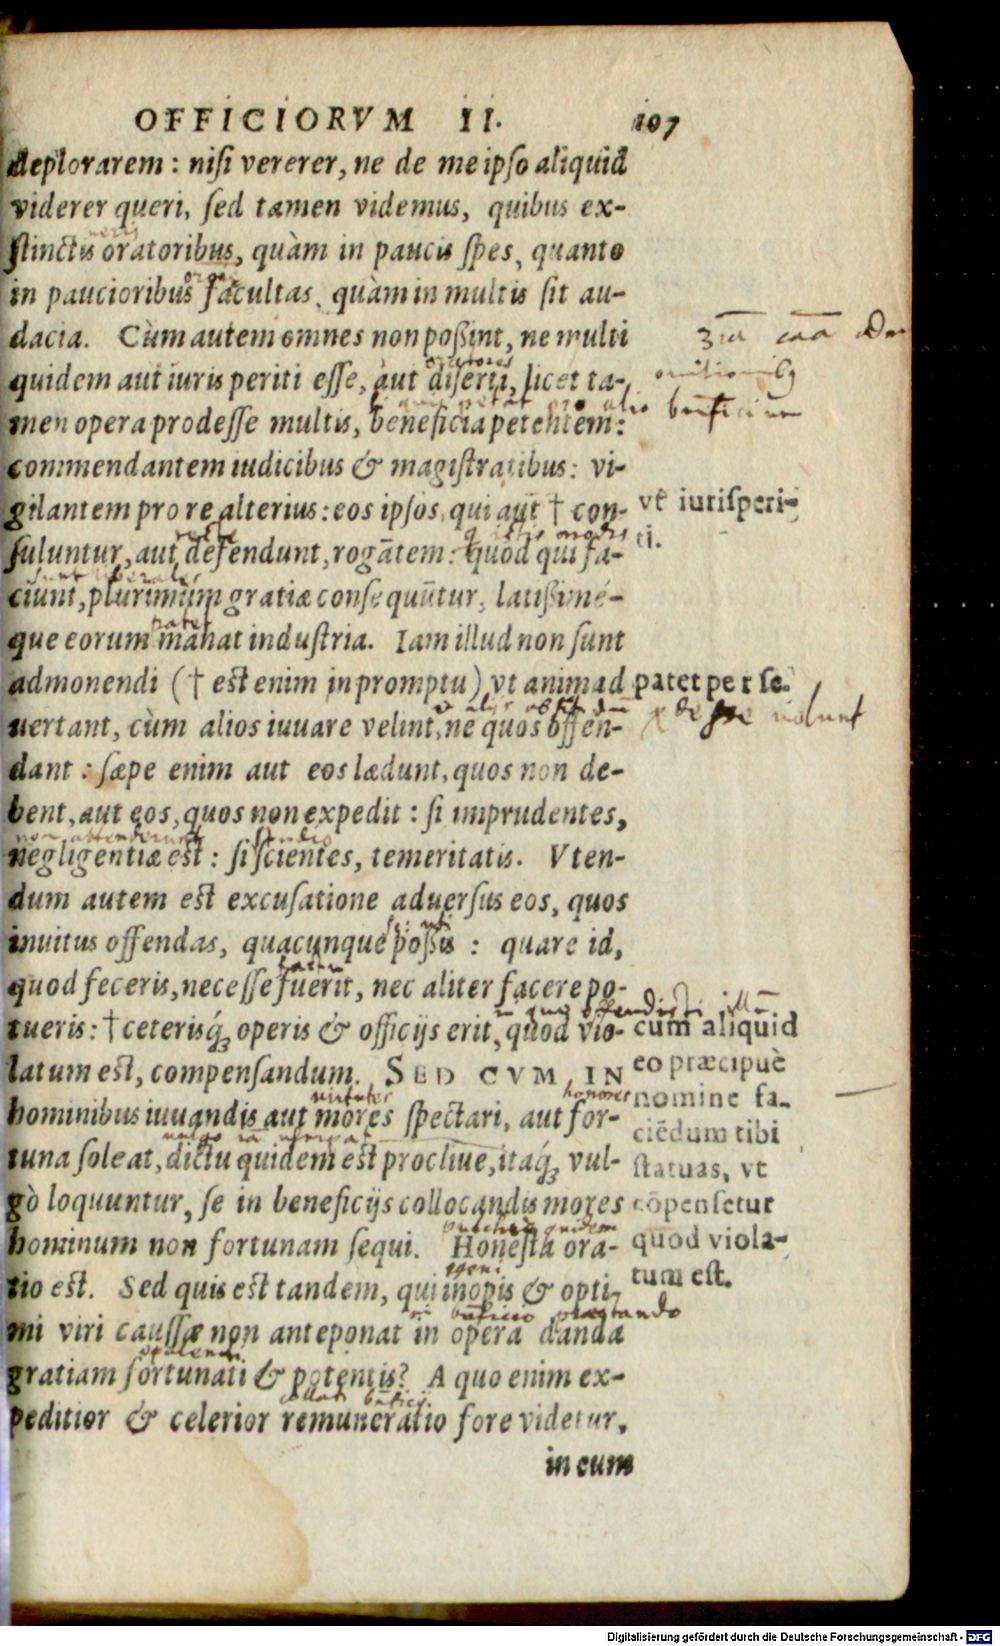 OFFICIORVM II. 107
deplorarem: nisi vererer, ne de me ipso aliquid
viderer queri, sed tamen videmus, quibus ex-
stinctis oratoribus, quàm in paucis spes, quanto
in paucioribus facultas, quàm in multis sit au-
dacia. Cùm autem omnes non poßint, ne multi
quidem aut iuris periti esse, aut diserti, licet ta-
oratores
men opera prodesse multis, beneficia petentem:
commendantem iudicibus & magistratibus: vi-
gilantem pro re alterius: eos ipsos, qui aut † con-
vt iurisperi-
ti.
suluntur, aut defendunt, rogātem: quod qui fa-
sunt liberales
ciunt, plurimùm gratiæ consequūtur, latißimé-
patet
que eorum manat industria. Iam illud non sunt
admonendi († est enim in promptu) vt animad
patet per se.
uertant, cùm alios iuuare velint, ne quos offen-
dant: sæpe enim aut eos lædunt, quos non de-
bent, aut eos, quos non expedit: si imprudentes,
non attenderunt studio
negligentiæ est: si scientes, temeritatis. Vten-
dum autem est excusatione aduersus eos, quos
inuitus offendas, quacunque poßis: quare id,
quod feceris, necesse fuerit, nec aliter facere po-
tueris: † ceterisq́; operis & officijs erit, quod vio-
cum aliquid
eo præcipuè
nomine fa-
ciēdum tibi
statuas, vt
cōpensetur
quod viola-
tum est.
latum est, compensandum. SED CVM IN
virtutes honores
hominibus iuuandis aut mores spectari, aut for-
tuna soleat, dictu quidem est procliue, itaq́; vul-
gò loquuntur, se in beneficijs collocandis mores
quidem
hominum non fortunam sequi. Honesta ora-
egeni
tio est. Sed quis est tandem, qui inopis & opti-
mi viri caussæ non anteponat in opera danda
gratiam fortunati & potentis? A quo enim ex-
peditior & celerior remuneratio fore videtur,
in eum
Digitalisierung gefördert durch die Deutsche Forschungsgemeinschaft - DFG